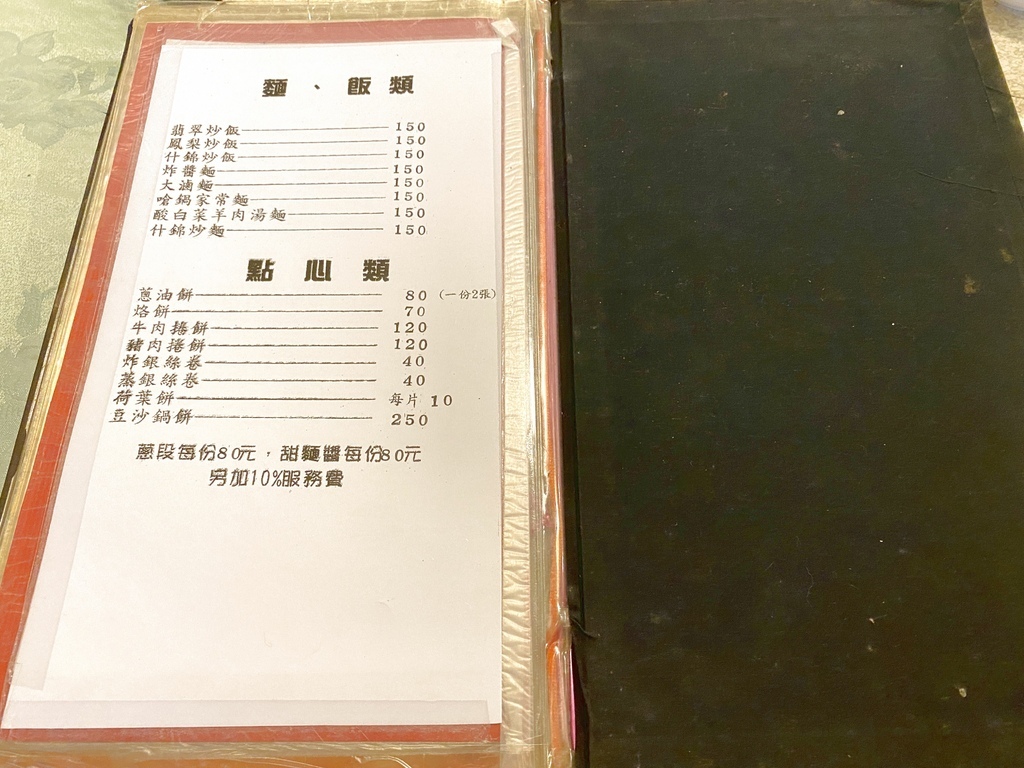 麵、飯類
翡翠炒飯 150
鳳梨炒飯 150
什錦炒飯 150
炸醬麵 150
大滷麵 150
嗆鍋家常麵 150
酸白菜羊肉湯麵 150
什錦炒麵 150
點心類
蔥油餅 80 (一份2張)
烙餅 70
牛肉捲餅 120
豬肉捲餅 120
炸銀絲卷 40
蒸銀絲卷 40
荷葉餅 每片 10
豆沙鍋餅 250
蔥段每份80元，甜麵醬每份80元
另加10%服務費